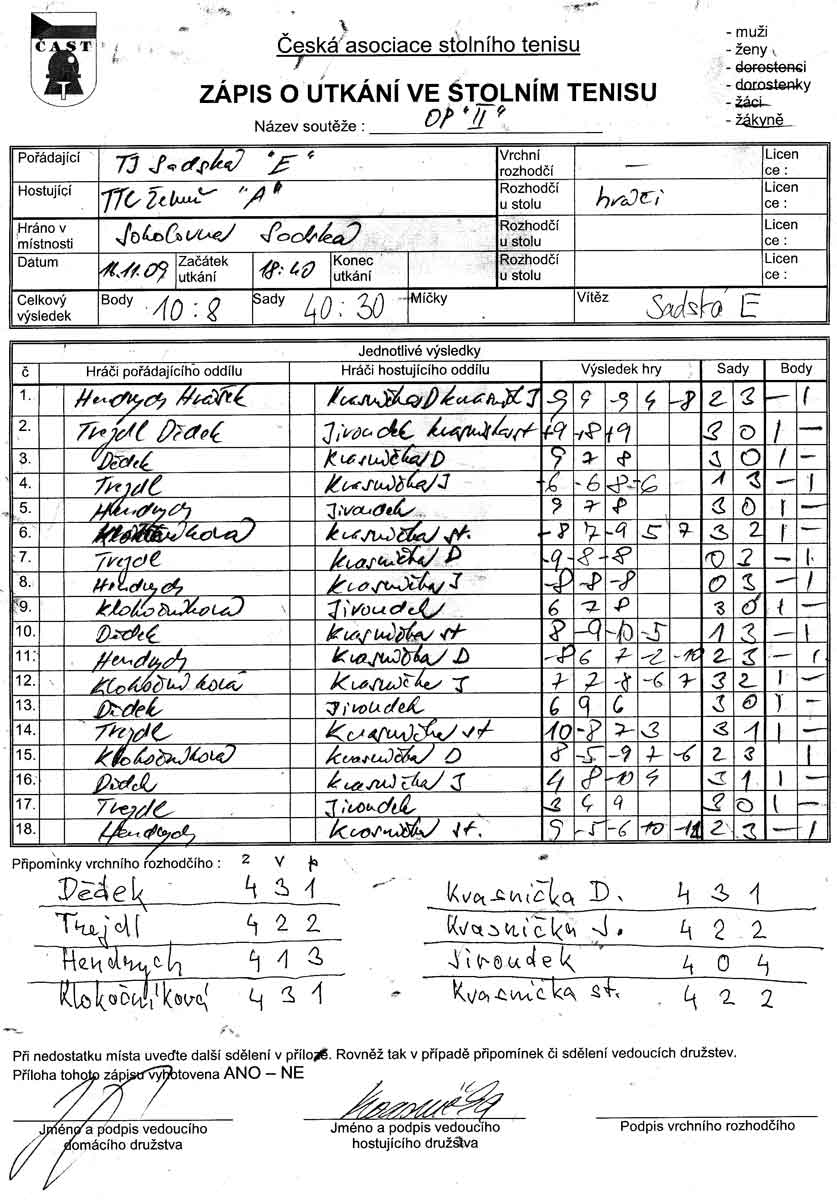 ČAST
Česká asociace stolního tenisu
ZÁPIS O UTKÁNÍ VE STOLNÍM TENISU
Název soutěže : OP "II"
- muži
- ženy
- dorostenci
- dorostenky
- žáci
- žákyně
Pořádající TJ Sadská "E" Vrchní rozhodčí — Licen ce :
Hostující TTC Žehuň "A" Rozhodčí u stolu hráči Licen ce :
Hráno v místnosti Sokolovna Sadská Rozhodčí u stolu Licen ce :
Datum 16.11.09 Začátek utkání 18:40 Konec utkání Rozhodčí u stolu Licen ce :
Celkový výsledek Body 10:8 Sady 40:30 Míčky Vítěz Sadská E
Jednotlivé výsledky
č Hráči pořádajícího oddílu Hráči hostujícího oddílu Výsledek hry Sady Body
1. Hendrych Kvasnička D Kvasnič J -9 9 -9 4 -8 2 3 — 1
2. Trejdl Dědek Jiroudek Kvasnička st +9 -8 +9 3 0 1 —
3. Dědek Kvasnička D 9 7 8 3 0 1 -
4. Trejdl Kvasnička J -6 -6 8 -6 1 3 — 1
5. Hendrych Jiroudek 9 7 8 3 0 1 —
6. Klokočníková Kvasnička st. -8 7 -9 5 7 3 2 1 —
7. Trejdl Kvasnička D -9 -8 -8 0 3 — 1
8. Hendrych Kvasnička J -8 -8 -8 0 3 — 1
9. Klokočníková Jiroudek 6 7 8 3 0 1 —
10. Dědek Kvasnička st 8 -9 -10 -5 1 3 — 1
11. Hendrych Kvasnička D -8 6 7 -2 -10 2 3 — 1
12. Klokočníková Kvasnička J 7 7 -8 -6 7 3 2 1 —
13. Dědek Jiroudek 6 9 6 3 0 1 —
14. Trejdl Kvasnička st 10 -8 7 3 3 1 1 —
15. Klokočníková Kvasnička D 8 -5 -9 7 -6 2 3 1
16. Dědek Kvasnička J 4 8 -10 4 3 1 1 —
17. Trejdl Jiroudek 3 4 9 3 0 1 —
18. Hendrych Kvasnička st. 9 -5 -6 10 -12 2 3 — 1
Připomínky vrchního rozhodčího : z v p
Dědek 4 3 1 Kvasnička D. 4 3 1
Trejdl 4 2 2 Kvasnička J. 4 2 2
Hendrych 4 1 3 Jiroudek 4 0 4
Klokočníková 4 3 1 Kvasnička st. 4 2 2
Při nedostatku místa uveďte další sdělení v příloze. Rovněž tak v případě připomínek či sdělení vedoucích družstev.
Příloha tohoto zápisu vyhotovena ANO – NE
Jméno a podpis vedoucího domácího družstva
Jméno a podpis vedoucího hostujícího družstva
Podpis vrchního rozhodčího